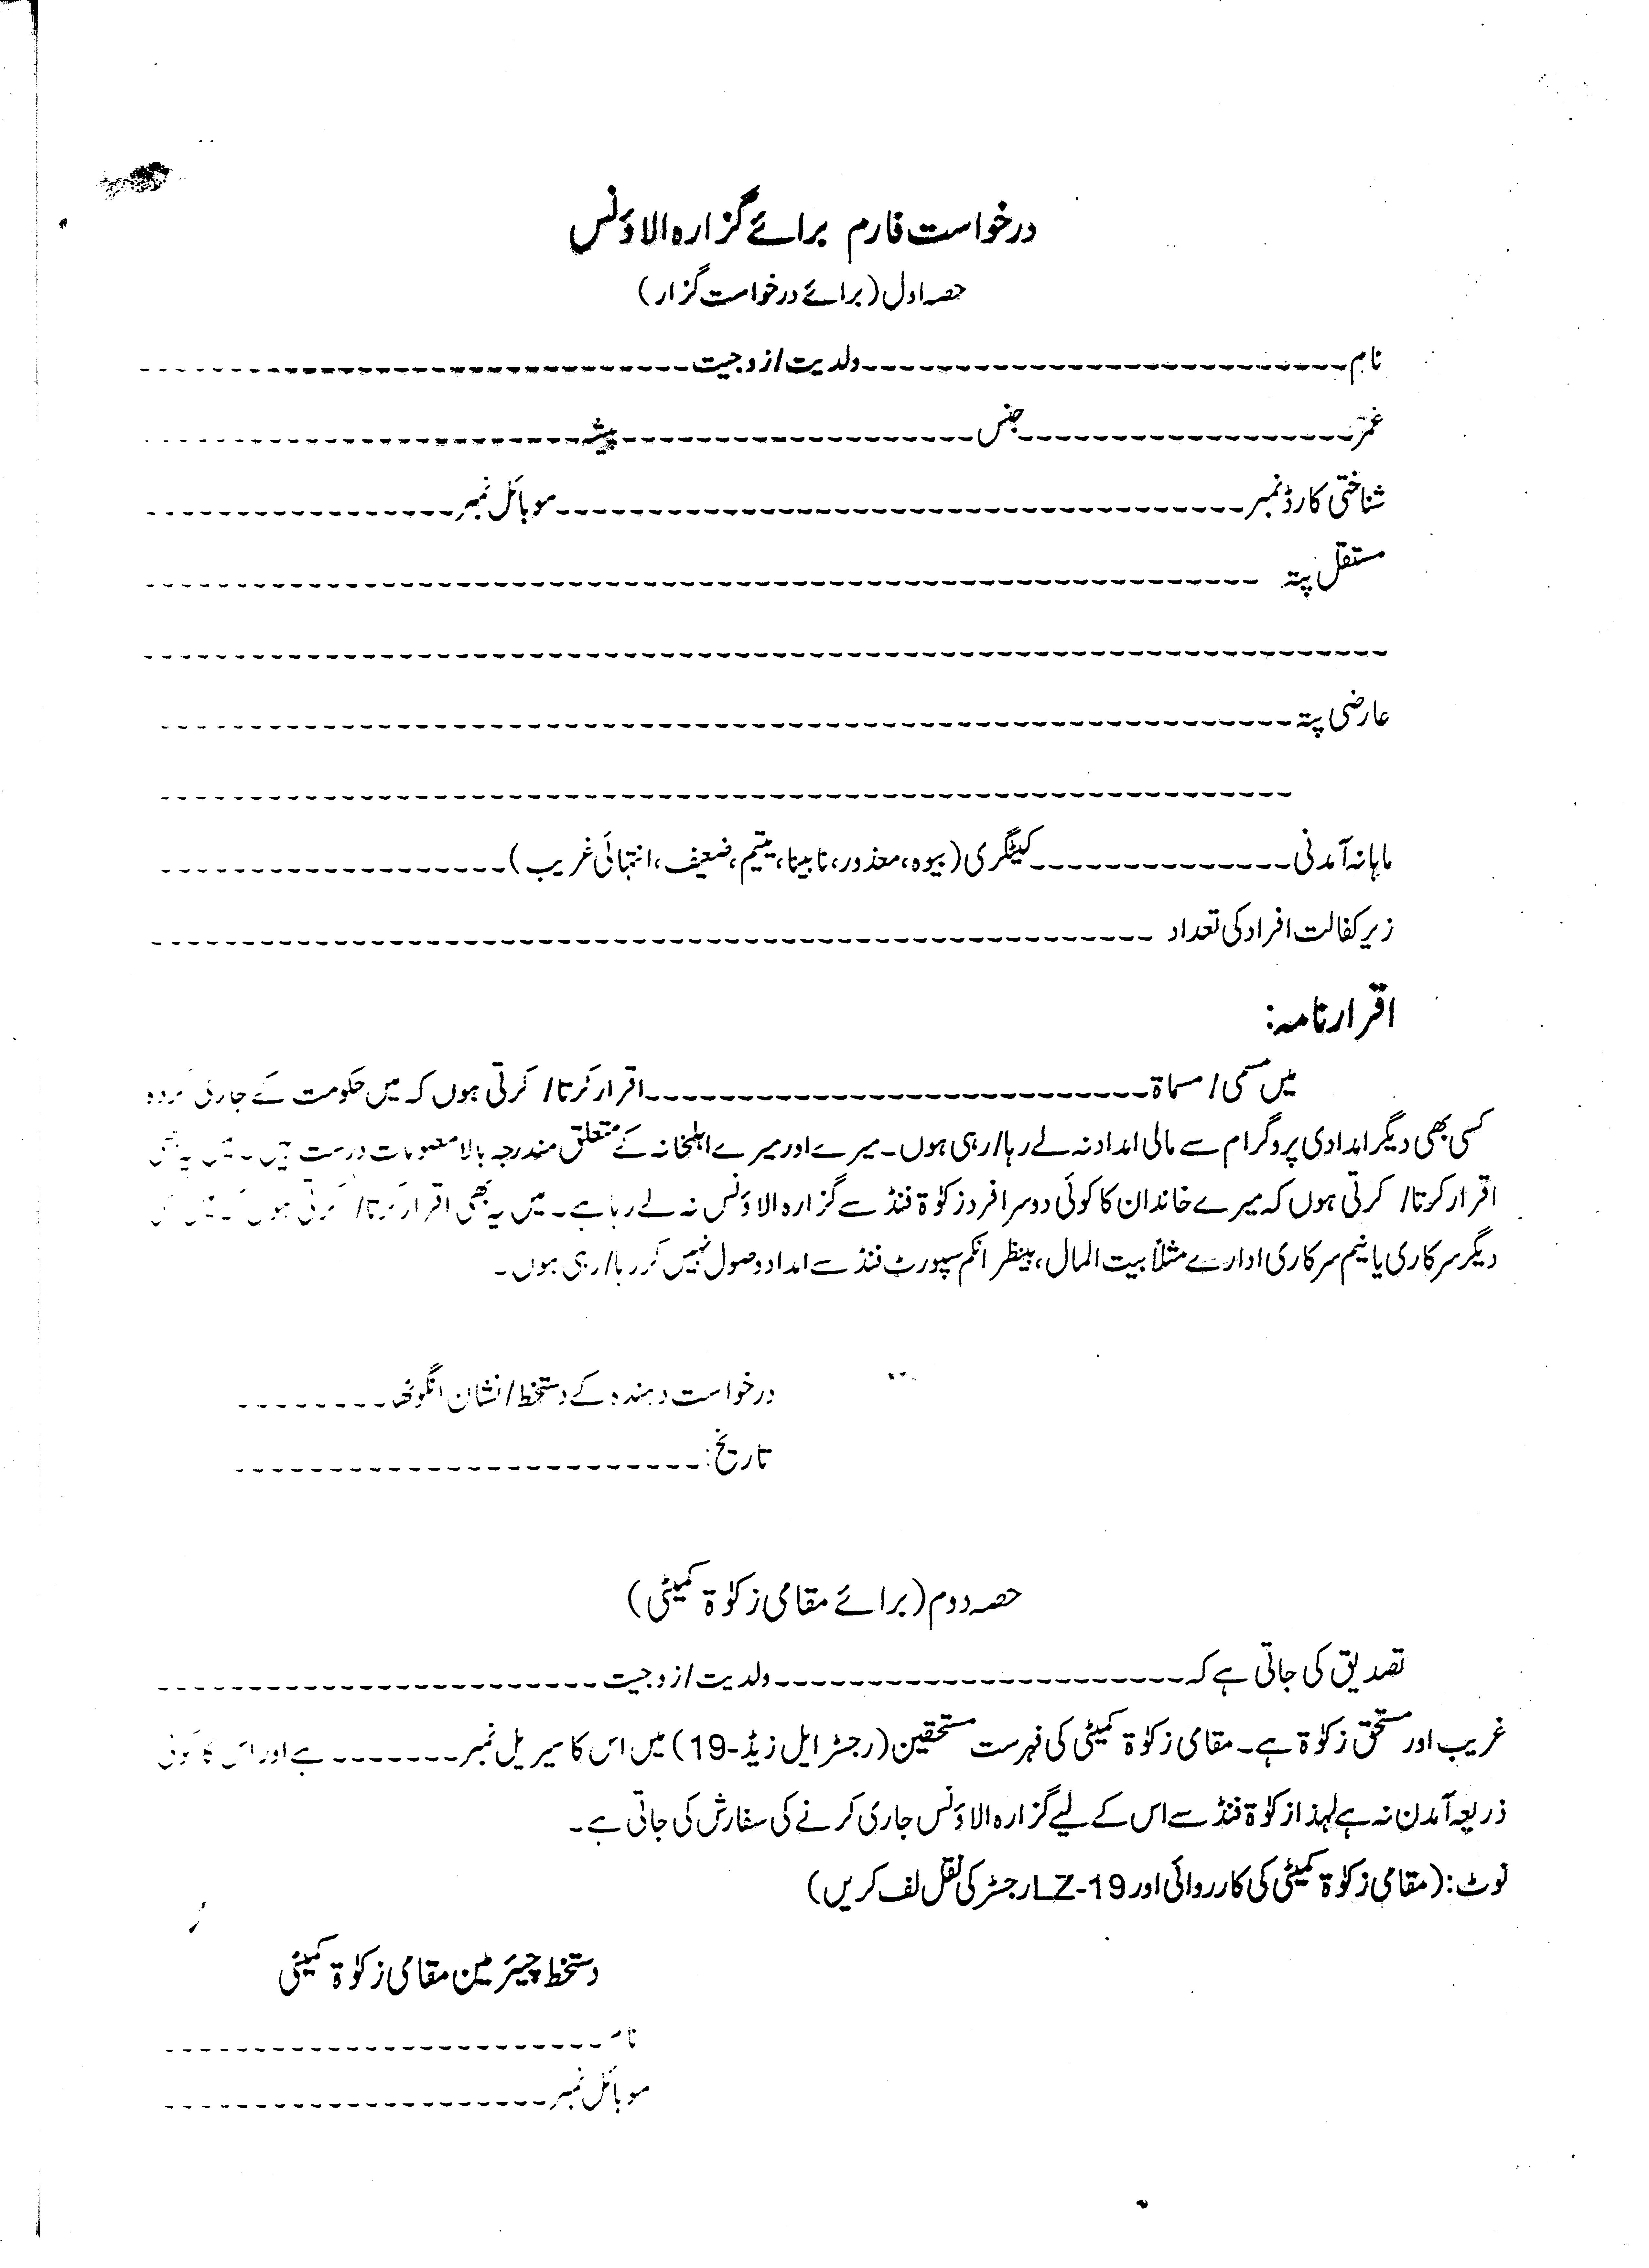 درخواست فارم برائے گزارہ الاؤنس
حصہ اول (برائے درخواست گزار)
نام------------------------ولدیت/زوجیت------------------------
عمر-----------------جنس-----------------پیشہ-----------------
شناختی کارڈ نمبر--------------------------------موبائل نمبر----------------
مستقل پتہ ------------------------------------------------
------------------------------------------------
عارضی پتہ------------------------------------------------
------------------------------------------------
ماہانہ آمدنی--------------کیٹگری (بیوہ، معذور، نابینا، یتیم، ضعیف، انتہائی غریب)----------------
زیر کفالت افراد کی تعداد ------------------------------------------------
اقرار نامہ:
میں مسمی/ مسماۃ------------------------اقرار کرتا/ کرتی ہوں کہ میں حکومت کے جاری کردہ
کسی بھی دیگر امدادی پروگرام سے مالی امداد نہ لے رہا/رہی ہوں۔ میرے اور میرے اہلخانہ کے متعلق مندرجہ بالا معلومات درست ہیں۔ میں یہ بھی
اقرار کرتا/ کرتی ہوں کہ میرے خاندان کا کوئی دوسرا فرد زکوٰۃ فنڈ سے گزارہ الاؤنس نہ لے رہا ہے۔ میں یہ بھی اقرار کرتا/ کرتی ہوں کہ میں کسی
دیگر سرکاری یا نیم سرکاری ادارے مثلاً بیت المال، بینظر انکم سپورٹ فنڈ سے امداد وصول نہیں کر رہا/رہی ہوں۔
درخواست دہندہ کے دستخط/نشان انگوٹھہ---------
تاریخ:------------------------
حصہ دوم (برائے مقامی زکوٰۃ کمیٹی)
تصدیق کی جاتی ہے کہ----------------------ولدیت/زوجیت------------------------
غریب اور مستحق زکوٰۃ ہے۔ مقامی زکوٰۃ کمیٹی کی فہرست مستحقین (رجسٹر ایل زیڈ-19) میں اس کا سیریل نمبر------- ہے اور اس کا کوئی
ذریعہ آمدن نہ ہے لہذا زکوٰۃ فنڈ سے اس کے لیے گزارہ الاؤنس جاری کرنے کی سفارش کی جاتی ہے۔
نوٹ: (مقامی زکوٰۃ کمیٹی کی کارروائی اور LZ-19 رجسٹر کی نقل لف کریں)
دستخط چیئرمین مقامی زکوٰۃ کمیٹی
نام------------------------
موبائل نمبر----------------------